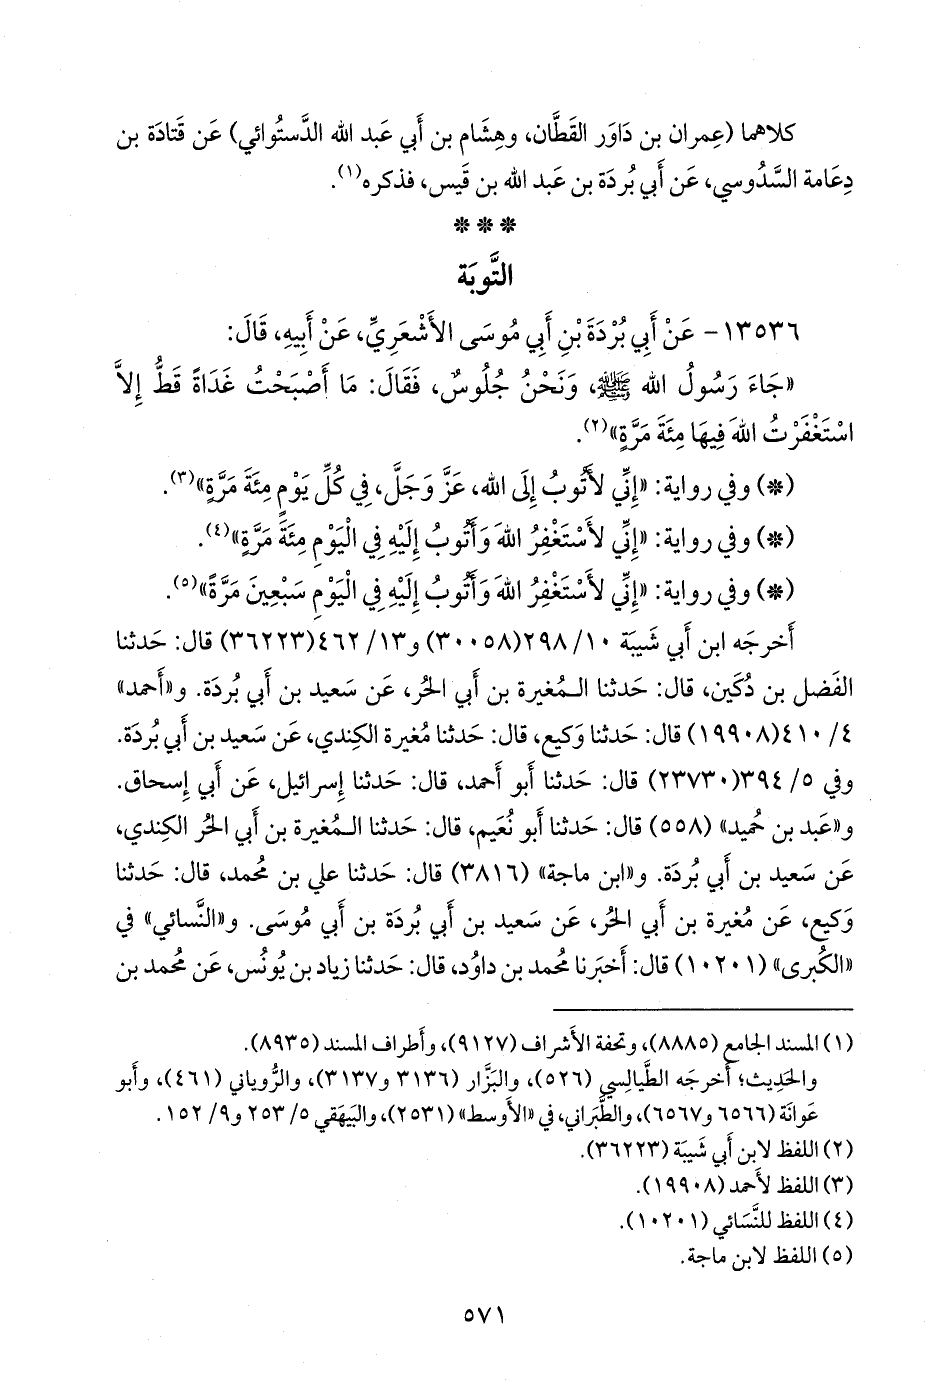 كلاهما (عِمران بن دَاوَر القَطَّان، وهِشَام بن أَبي عَبد الله الدَّستُوائي) عَن قَتادَة بن
دِعَامة السَّدُوسي، عَن أَبي بُردَة بن عَبد الله بن قَيس، فذكره(١).
* * *
التَّوبَة
١٣٥٣٦- عَنْ أَبِي بُرْدَةَ بْنِ أَبِي مُوسَى الأَشْعَرِيِّ، عَنْ أَبِيهِ، قَالَ:
«جَاءَ رَسُولُ الله ﷺ، وَنَحْنُ جُلُوسٌ، فَقَالَ: مَا أَصْبَحْتُ غَدَاةً قَطُّ إِلاَّ
اسْتَغْفَرْتُ اللهَ فِيهَا مِئَةَ مَرَّةٍ»(٢).
(*) وفي رواية: «إِنِّي لأَتُوبُ إِلَى الله، عَزَّ وَجَلَّ، فِي كُلِّ يَوْمٍ مِئَةَ مَرَّةٍ»(٣).
(*) وفي رواية: «إِنِّي لأَسْتَغْفِرُ اللهَ وَأَتُوبُ إِلَيْهِ فِي الْيَوْمِ مِئَةَ مَرَّةٍ»(٤).
(*) وفي رواية: «إِنِّي لأَسْتَغْفِرُ اللهَ وَأَتُوبُ إِلَيْهِ فِي الْيَوْمِ سَبْعِينَ مَرَّةً»(٥).
أَخرجَه ابن أَبي شَيبَة ١٠/ ٢٩٨(٣٠٠٥٨) و١٣/ ٤٦٢(٣٦٢٢٣) قال: حَدثنا
الفَضل بن دُكَين، قال: حَدثنا الـمُغيرة بن أَبي الحُر، عَن سَعيد بن أَبي بُردَة. و«أَحمد»
٤/ ٤١٠(١٩٩٠٨) قال: حَدثنا وَكيع، قال: حَدثنا مُغيرة الكِندي، عَن سَعيد بن أَبي بُردَة.
وفي ٥/ ٣٩٤(٢٣٧٣٠) قال: حَدثنا أَبو أَحمد، قال: حَدثنا إِسرائيل، عَن أَبي إِسحاق.
و«عَبد بن حُميد» (٥٥٨) قال: حَدثنا أَبو نُعَيم، قال: حَدثنا الـمُغيرة بن أَبي الحُر الكِندي،
عَن سَعيد بن أَبي بُردَة. و«ابن ماجة» (٣٨١٦) قال: حَدثنا علي بن مُحمد، قال: حَدثنا
وَكيع، عَن مُغيرة بن أَبي الحُر، عَن سَعيد بن أَبي بُردَة بن أَبي مُوسَى. و«النَّسائي» في
«الكُبرى» (١٠٢٠١) قال: أَخبَرنا مُحمد بن داوُد، قال: حَدثنا زياد بن يُونُس، عَن مُحمد بن
(١) المسند الجامع (٨٨٨٥)، وتحفة الأَشراف (٩١٢٧)، وأَطراف المسند (٨٩٣٥).
والحَدِيث؛ أَخرجَه الطَّيالِسي (٥٢٦)، والبَزَّار (٣١٣٦ و٣١٣٧)، والرُّوياني (٤٦١)، وأَبو
عَوانَة (٦٥٦٦ و٦٥٦٧)، والطَّبَراني، في «الأَوسط» (٢٥٣١)، والبَيهَقي ٥/ ٢٥٣ و٩/ ١٥٢.
(٢) اللفظ لابن أَبي شَيبَة (٣٦٢٢٣).
(٣) اللفظ لأَحمد (١٩٩٠٨).
(٤) اللفظ للنَّسَائي (١٠٢٠١).
(٥) اللفظ لابن ماجة.
٥٧١